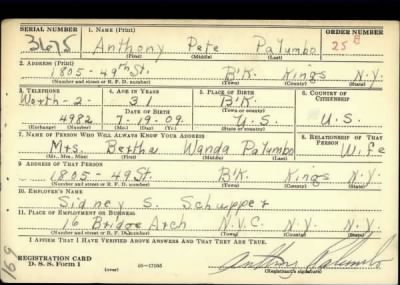 SERIAL NUMBER 1. NAME (Print) ORDER NUMBER
3615 Anthony Pete Palumbo 258
(First) (Middle) (Last)
2. ADDRESS (Print)
1805-49th St. B'K. Kings N.Y.
(Number and street or R. F. D. number) (Town) (County) (State)
3. TELEPHONE 4. AGE IN YEARS 5. PLACE OF BIRTH 6. COUNTRY OF CITIZENSHIP
Worth-2- 31 B'K.
DATE OF BIRTH (Town or county)
4982 7-19-09 U.S. U.S.
(Exchange) (Number) (Mo.) (Day) (Yr.) (State or country)
7. NAME OF PERSON WHO WILL ALWAYS KNOW YOUR ADDRESS 8. RELATIONSHIP OF THAT PERSON
Mrs. Bertha Wanda Palumbo Wife
(Mr., Mrs., Miss) (First) (Middle) (Last)
9. ADDRESS OF THAT PERSON
1805-49 St. B'K. Kings N.Y.
(Number and street or R. F. D. number) (Town) (County) (State)
10. EMPLOYER'S NAME
Sidney S. Schupper
11. PLACE OF EMPLOYMENT OR BUSINESS
16 Bridge Arch N.Y.C. N.Y. N.Y.
(Number and street or R. F. D. number) (Town) (County) (State)
I AFFIRM THAT I HAVE VERIFIED ABOVE ANSWERS AND THAT THEY ARE TRUE.
REGISTRATION CARD
D. S. S. Form 1 (over) 16-17105 Anthony Palumbo
(Registrant's signature)
169